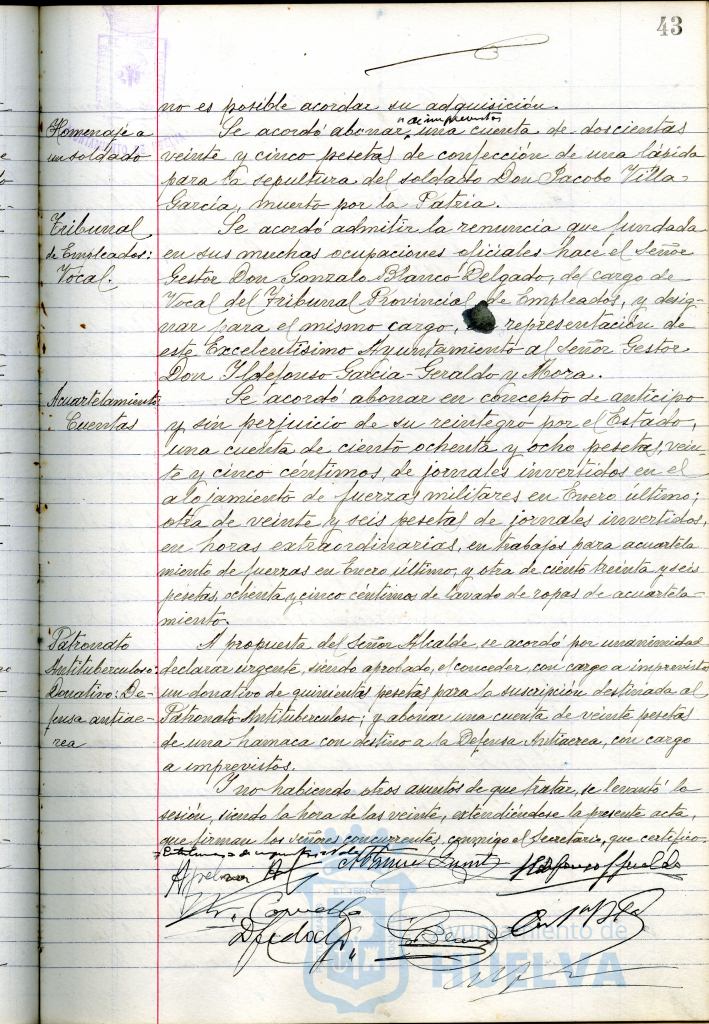 43
no es posible acordar su adquisición.
Homenaje a
un soldado
Se acordó abonar "de imprevistos" una cuenta de doscientas
veinte y cinco pesetas de confección de una lápida
para la sepultura del soldado Don Jacobo Villa-
García, muerto por la Patria.
Tribunal
de Empleados:
Vocal.
Se acordó admitir la renuncia que fundada
en sus muchas ocupaciones oficiales hace el Señor
Gestor Don Gonzalo Blanco Delgado, del cargo de
Vocal del Tribunal Provincial de Empleados, y desig-
nar para el mismo cargo, representación de
este Excelentísimo Ayuntamiento al Señor Gestor
Don Ildefonso García-Geraldo y Mora.
Acuartelamiento
: Cuentas
Se acordó abonar en concepto de anticipo
y sin perjuicio de su reintegro por el Estado,
una cuenta de ciento ochenta y ocho pesetas, vein-
te y cinco céntimos, de jornales invertidos en el
alojamiento de fuerzas militares en Enero último;
otra de veinte y seis pesetas de jornales invertidos,
en horas extraordinarias, en trabajos para acuartela
miento de fuerzas en Enero último, y otra de ciento treinta y seis
pesetas, ochenta y cinco céntimos de lavado de ropas de acuartela-
miento.
Patronato
Antituberculoso:
Donativo: De-
fensa antiaé-
rea
A propuesta del Señor Alcalde, se acordó por unanimidad
declarar urgente, siendo aprobado, el conceder, con cargo a imprevistos
un donativo de quinientas pesetas para la suscripción destinada al
Patronato Antituberculoso; y abonar una cuenta de veinte pesetas
de una hamaca con destino a la Defensa Antiaérea, con cargo
a imprevistos.
Y no habiendo otros asuntos de que tratar, se levantó la
sesión, siendo la hora de las veinte, extendiéndose la presente acta,
que firman los señores concurrentes, conmigo el Secretario, que certifico.
Ayuntamiento de
HUELVA